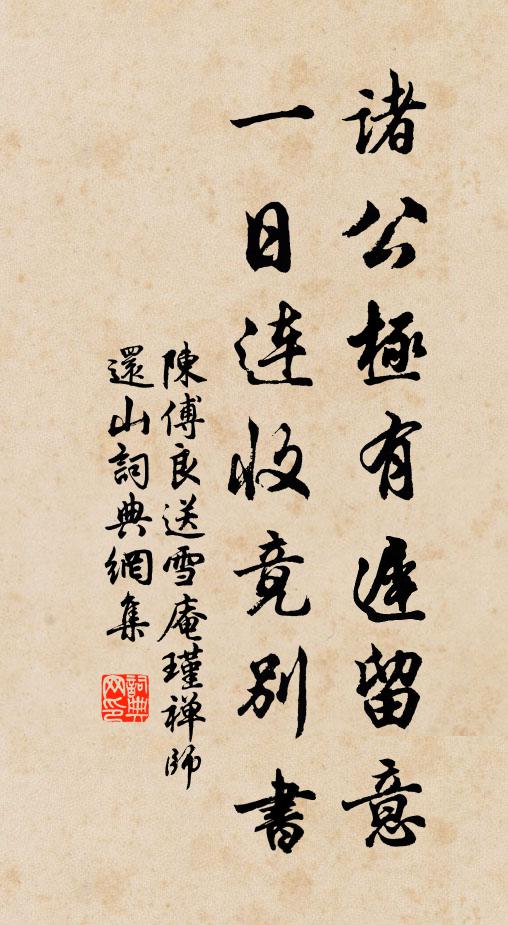 諸公極有遲留意
一日連收竟別書
陳傅良送雪庵瑾禅師
還山詞典網集
詞典
网印